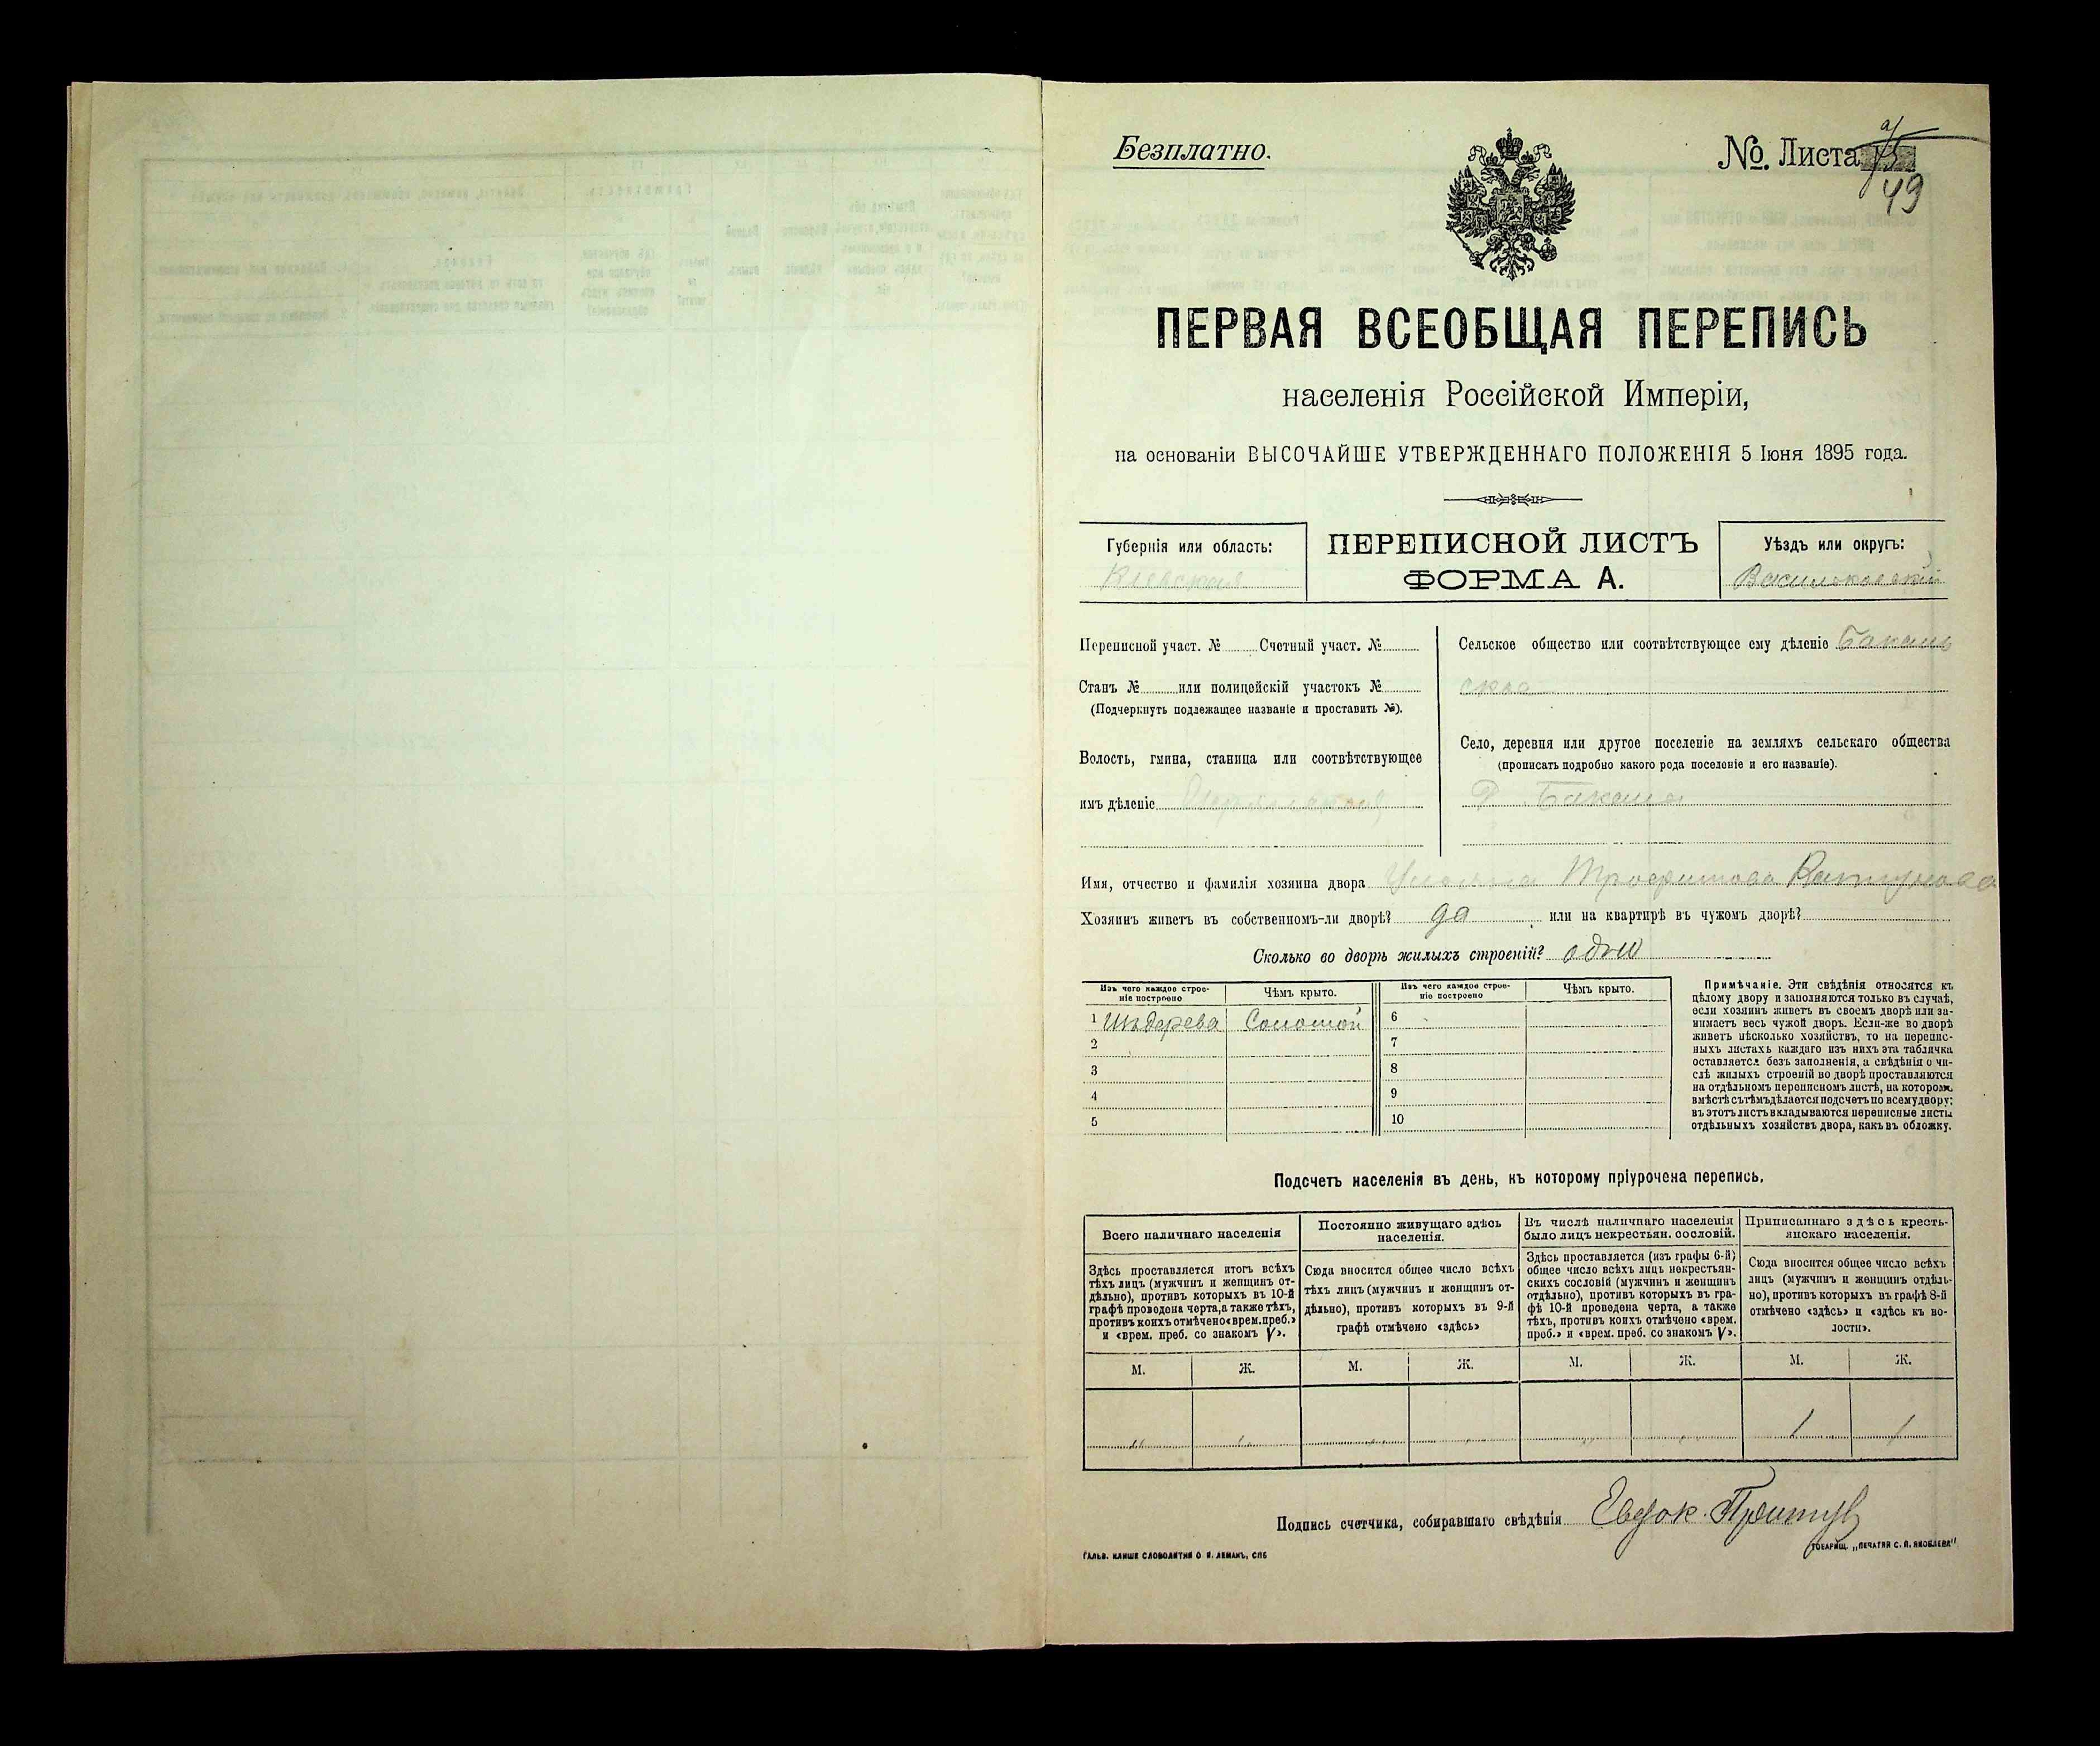 Безплатно.
№. Листа
49
ПЕРВАЯ ВСЕОБЩАЯ ПЕРЕПИСЬ
населенія Россійской Имперіи,
на основаніи ВЫСОЧАЙШЕ УТВЕРЖДЕННАГО ПОЛОЖЕНІЯ 5 Іюня 1895 года.
Губернія или область:
Кіевская
ПЕРЕПИСНОЙ ЛИСТЪ
ФОРМА А.
Уѣздъ или округъ:
Васильковскій
Переписной участ. № Счетный участ. №
Станъ № или полицейскій участокъ №
(Подчеркнуть подлежащее названіе и проставить №).
Волость, гмина, станица или соотвѣтствующее
имъ дѣленіе
Сельское общество или соотвѣтствующее ему дѣленіе
Село, деревня или другое поселеніе на земляхъ сельскаго общества
(прописать подробно какого рода поселеніе и его названіе).
Имя, отчество и фамилія хозяина двора Трофимова
Хозяинъ живетъ въ собственномъ-ли дворѣ? да или на квартирѣ въ чужомъ дворѣ?
Сколько во дворѣ жилыхъ строеній?
Изъ чего каждое строе-
ніе построено
Чѣмъ крыто.
Изъ чего каждое строе-
ніе построено
Чѣмъ крыто.
1 Соломой 6
2 7
3 8
4 9
5 10
Примѣчаніе. Эти свѣдѣнія относятся къ
цѣлому двору и заполняются только въ случаѣ,
если хозяинъ живетъ въ своемъ дворѣ или за-
нимаетъ весь чужой дворъ. Если-же во дворѣ
живетъ нѣсколько хозяйствъ, то на перепис-
ныхъ листахъ каждаго изъ нихъ эта табличка
оставляется безъ заполненія, а свѣдѣнія о чи-
слѣ жилыхъ строеній во дворѣ проставляются
на отдѣльномъ переписномъ листѣ, на которомъ
вмѣстѣ съ тѣмъ дѣлается подсчетъ по всему двору;
въ этотъ листъ вкладываются переписные листы
отдѣльныхъ хозяйствъ двора, какъ въ обложку.
Подсчетъ населенія въ день, къ которому пріурочена перепись.
Всего наличнаго населенія
Здѣсь проставляется итогъ всѣхъ
тѣхъ лицъ (мужчинъ и женщинъ от-
дѣльно), противъ которыхъ въ 10-й
графѣ проведена черта, а также тѣхъ,
противъ коихъ отмѣчено «врем. преб.»
и «врем. преб. со знакомъ V».
Постоянно живущаго здѣсь
населенія.
Сюда вносится общее число всѣхъ
тѣхъ лицъ (мужчинъ и женщинъ от-
дѣльно), противъ которыхъ въ 9-й
графѣ отмѣчено «здѣсь»
Въ числѣ наличнаго населенія
было лицъ некрестьян. сословій.
Здѣсь проставляется (изъ графы 6-й)
общее число всѣхъ лицъ некрестьян-
скихъ сословій (мужчинъ и женщинъ
отдѣльно), противъ которыхъ въ гра-
фѣ 10-й проведена черта, а также
тѣхъ, противъ коихъ отмѣчено «врем.
преб.» и «врем. преб. со знакомъ V».
Приписаннаго здѣсь кресть-
янскаго населенія.
Сюда вносится общее число всѣхъ
лицъ (мужчинъ и женщинъ отдѣль-
но), противъ которыхъ въ графѣ 8-й
отмѣчено «здѣсь» и «здѣсь къ во-
лости».
М. Ж. М. Ж. М. Ж. М. Ж.
1 1
Подпись счетчика, собиравшаго свѣдѣнія
ГАЛЬВ. КЛИШЕ СЛОВОЛИТНИ О. И. ЛЕМАНЪ, СПБ
ТОВАРИЩ. „ПЕЧАТНЯ С. П. ЯКОВЛЕВА"